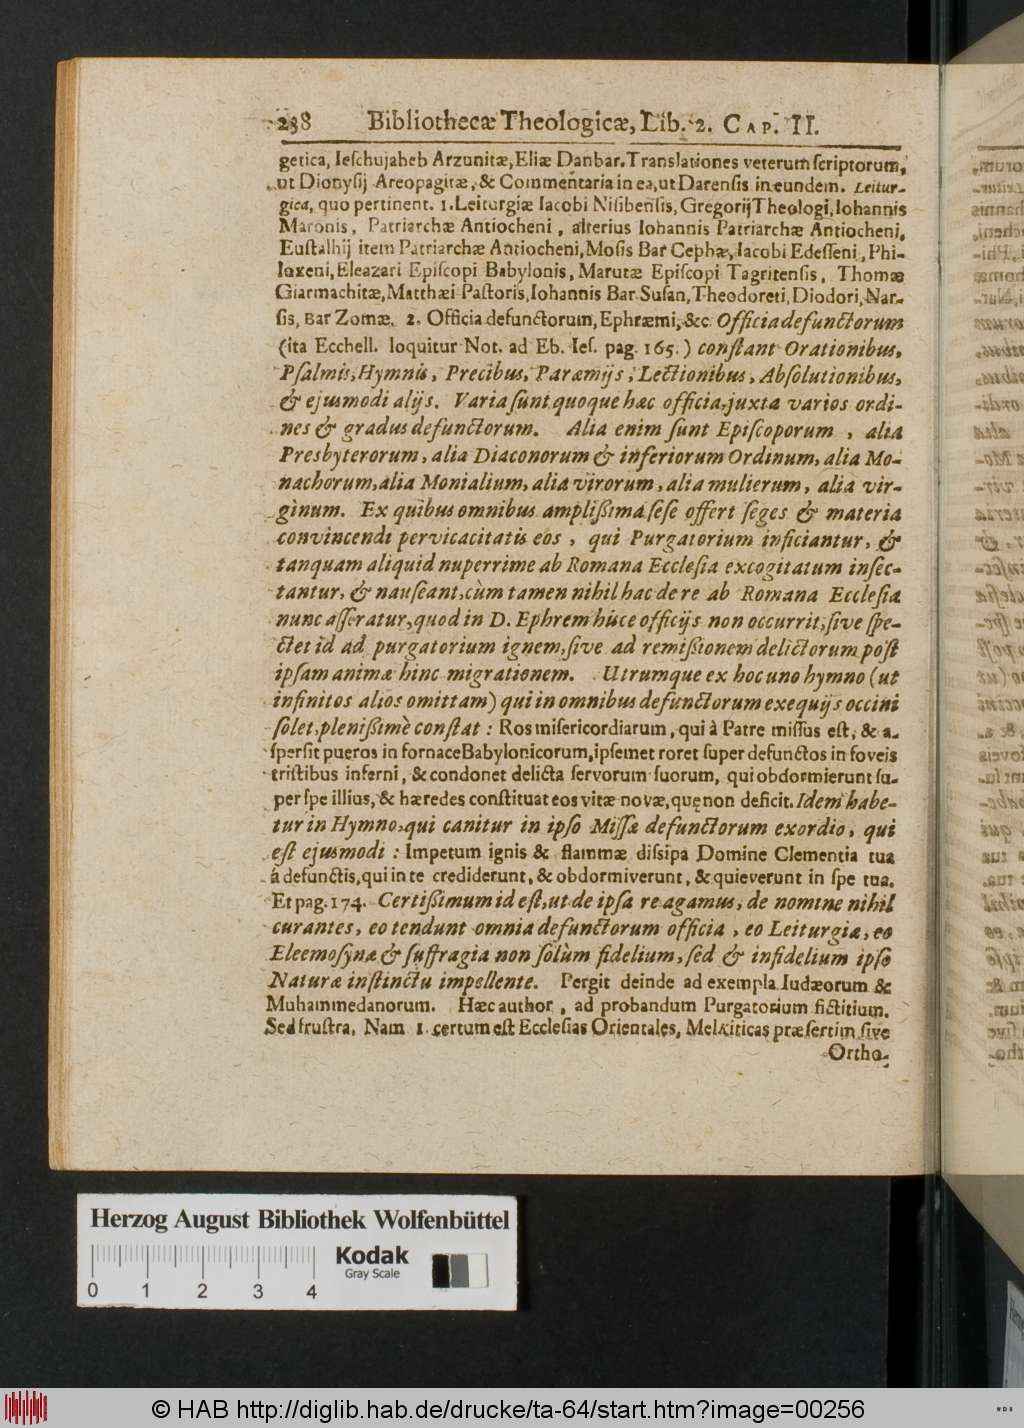 238 Bibliothecæ Theologicæ, Lib. 2. CAP. II.
getica, Ieſchujaheb Arzunitæ, Eliæ Danbar. Translationes veterum ſcriptorum,
ut Dionyſij Areopagitæ, & Commentaria in ea, ut Darenſis in eundem. Leitur-
gica, quo pertinent. 1. Leiturgiæ Iacobi Niſibenſis, Gregorij Theologi, Iohannis
Maronis, Patriarchæ Antiocheni, alterius Iohannis Patriarchæ Antiocheni,
Euſtalhij item Patriarchæ Antiocheni, Moſis Bar Cephæ, Iacobi Edeſſeni, Phi-
loxeni, Eleazari Epiſcopi Babylonis, Marutæ Epiſcopi Tagritenſis, Thomæ
Giarmachitæ, Matthæi Paſtoris, Iohannis Bar Suſan, Theodoreti, Diodori, Nar-
ſis, Bar Zomæ. 2. Officia defunctorum, Ephræmi, &c Officia defunctorum
(ita Ecchell. loquitur Not. ad Eb. Ieſ. pag. 165.) conſtant Orationibus,
Pſalmis, Hymnis, Precibus, Paræmijs, Lectionibus, Abſolutionibus,
& ejusmodi alijs. Varia ſunt quoque hæc officia, juxta varios ordi-
nes & gradus defunctorum. Alia enim ſunt Epiſcoporum, alia
Presbyterorum, alia Diaconorum & inferiorum Ordinum, alia Mo-
nachorum, alia Monialium, alia virorum, alia mulierum, alia vir-
ginum. Ex quibus omnibus ampliſſima ſeſe offert ſeges & materia
convincendi pervicacitatis eos, qui Purgatorium inficiantur, &
tanquam aliquid nuperrime ab Romana Eccleſia excogitatum inſec-
tantur, & nauſeant, cùm tamen nihil hac de re ab Romana Eccleſia
nunc aſſeratur, quod in D. Ephrem hisce officijs non occurrit, ſive ſpe-
ctet id ad purgatorium ignem, ſive ad remiſſionem delictorum poſt
ipſam animæ hinc migrationem. Utrumque ex hoc uno hymno (ut
infinitos alios omittam) qui in omnibus defunctorum exequijs occini
ſolet, pleniſſimè conſtat: Ros miſericordiarum, qui à Patre miſſus eſt, & a-
ſperſit pueros in fornace Babylonicorum, ipſemet roret ſuper defunctos in foveis
triſtibus inferni, & condonet delicta ſervorum ſuorum, qui obdormierunt ſu-
per ſpe illius, & hæredes conſtituat eos vitæ novæ, quę non deficit. Idem habe-
tur in Hymno, qui canitur in ipſo Miſſæ defunctorum exordio, qui
eſt ejusmodi: Impetum ignis & flammæ diſsipa Domine Clementia tua
á defunctis, qui in te crediderunt, & obdormiverunt, & quieverunt in ſpe tua.
Et pag. 174. Certiſſimum id eſt, ut de ipſa re agamus, de nomine nihil
curantes, eo tendunt omnia defunctorum officia, eo Leiturgiæ, eo
Eleemoſynæ & ſuffragia non ſolùm fidelium, ſed & infidelium ipſo
Naturæ inſtinctu impellente. Pergit deinde ad exempla Iudæorum &
Muhammedanorum. Hæc author, ad probandum Purgatorium fictitium.
Sed fruſtra, Nam 1. certum eſt Eccleſias Orientales, Melkiticas præſertim ſive
Ortho-
Herzog August Bibliothek Wolfenbüttel
Kodak
Gray Scale
0 1 2 3 4
© HAB http://diglib.hab.de/drucke/ta-64/start.htm?image=00256